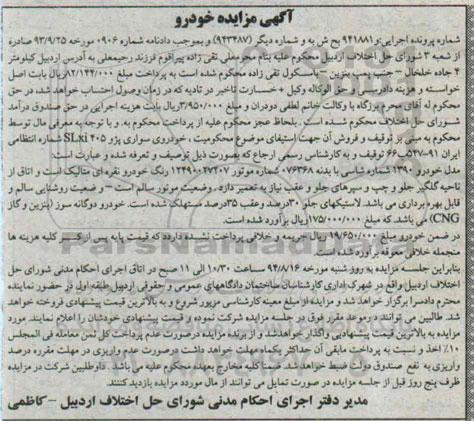 آگهی مزایده خودرو
شماره پرونده اجرایی:و۹۴۱۸۸۱ بح ش یه و شماره دیگر (۹۴۳۴۸۷) و بموجب دادنامه شماره ۰۹۰۶ مورخه ۹۳/۹/۲۵ صادره
از شعبه ۳ شورای حل اختلاف اردبیل محکوم علیه بنام محومعلی تقی زاده پیراقوم فرزند رحیمعلی به آدرس اردبیل کیلومتر
۴ جاده خلخال - جنب پمپ بنزین - باسکول تقی زاده محکوم شده است به پرداخت مبلغ ۸۲/۱۴۴/۰۰۰ریال بابت اصل
خواسته و هزینه دادرسی و حق الوکاله وکیل + خسارت تاخیر در تادیه که در زمان وصول احتساب خواهد شد، در حق
محکوم له آقای نجف برزگاه با وکالت خانم لطفی دودران و مبلغ ۳/۹۵۰/۰۰۰ریال بابت هزینه اجرایی در حق صندوق درآمد
شورای حل اختلاف محکوم شده است . بلحاظ عجز محکوم علیه از پرداخت محکوم به، و با توجه به معرفی مال توسط
محکوم به مبنی بر توقیف و فروش آن جهت استیفای موضوع محکومیت ، خودروی سواری پژو ۴۰۵ SLxi شماره انتظامی
ایران ۹۱-۵۳۷ ۶۶ توقیف و به کارشناس رسمی ارجاع که بصورت ذیل توصیف و تعرفه شده و عبارت است:
مدل خودرو ۱۳۹۰ شماره شاسی با بدنه ۰۷۶۳۶۸ شماره موتور ۱۲۴۹۰۰۲۷۲۰۷ رنگ خودرو نقره ای متالیک است و اتاق از
ناحیه گلگیر جلو و چپ و سپرهای جلو و عقب نیاز به تعمیر دارد . وضعیت موتور سالم است - و ضعیت روشنایی سالم و
قابل بهره برداری می باشد. لاستیکهای جلو ۳۰درصد وعقب ۳۵درصد مستهلک شده است. خودرو دوگانه سوز (بنزین و گاز
CNG) می باشد. که مبلغ ۱۷۵/۰۰۰/۰۰۰ریال برآورد شده است.
در ضمن خودرو مبلغ ۱۹/۶۵۰/۰۰۰ ریال جریمه و خلافی پرداخت نشده دارد که قیمت پایه پس از کسر کلیه هزینه ها
منجمله خلافی معوقه برآورد شده است.
بنابراین جلسه مزایده به روز شنبه مورخه ۹۴/۸/۱۶ ساعت ۱۰/۳۰ الی ۱۱ صبح در اتاق اجرای احکام مدنی شورای حل
اختلاف اردبیل واقع در شهرک اداری کارشناسان ساختمان دادگاههای عمومی و حقوقی اردبیل طبقه اول در حضور نماینده
محترم دادسرا برگزار خواهد شد و مزایده از مبلغ معینه کارشناسی مزبور شروع و به بالاترین قیمت پیشنهادی فروخته خواهد
شد. طالبین می توانند در موعد مقرر فوق در جلسه مزایده شرکت نموده و قیمت پیشنهادی خودشان را اعلام نمایند. مورد
مزایده به بالاترین قیمت پیشنهادی واگذار خواهدشد و از برنده مزایده درصورت عدم پرداخت کل ثمن معامله فی المجلس
۱۰٪ اخذ و نسبت به پرداخت مابقی آن حداکثر یکماه مهلت خواهد داشت و درصورت عدم واریزی در مهلت مقرره درصد
واریزی به نفع صندوق دولت ضبط خواهد شد. ضمنا کلیه مخارج بعهده محکوم علیه می باشد . داوطلبین شرکت در مزایده
ظرف پنج روز قبل از جلسه مزایده در صورت تمایل می توانند از مال موردد مزایده بازدید کنند.
مدیر دفتر اجرای احکام مدنی شورای حل اختلاف اردبیل - کاظمی
ParsNamadData